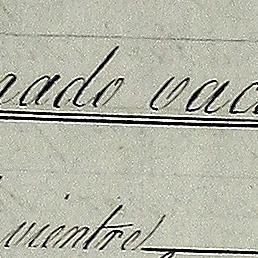 nado vac
vientre